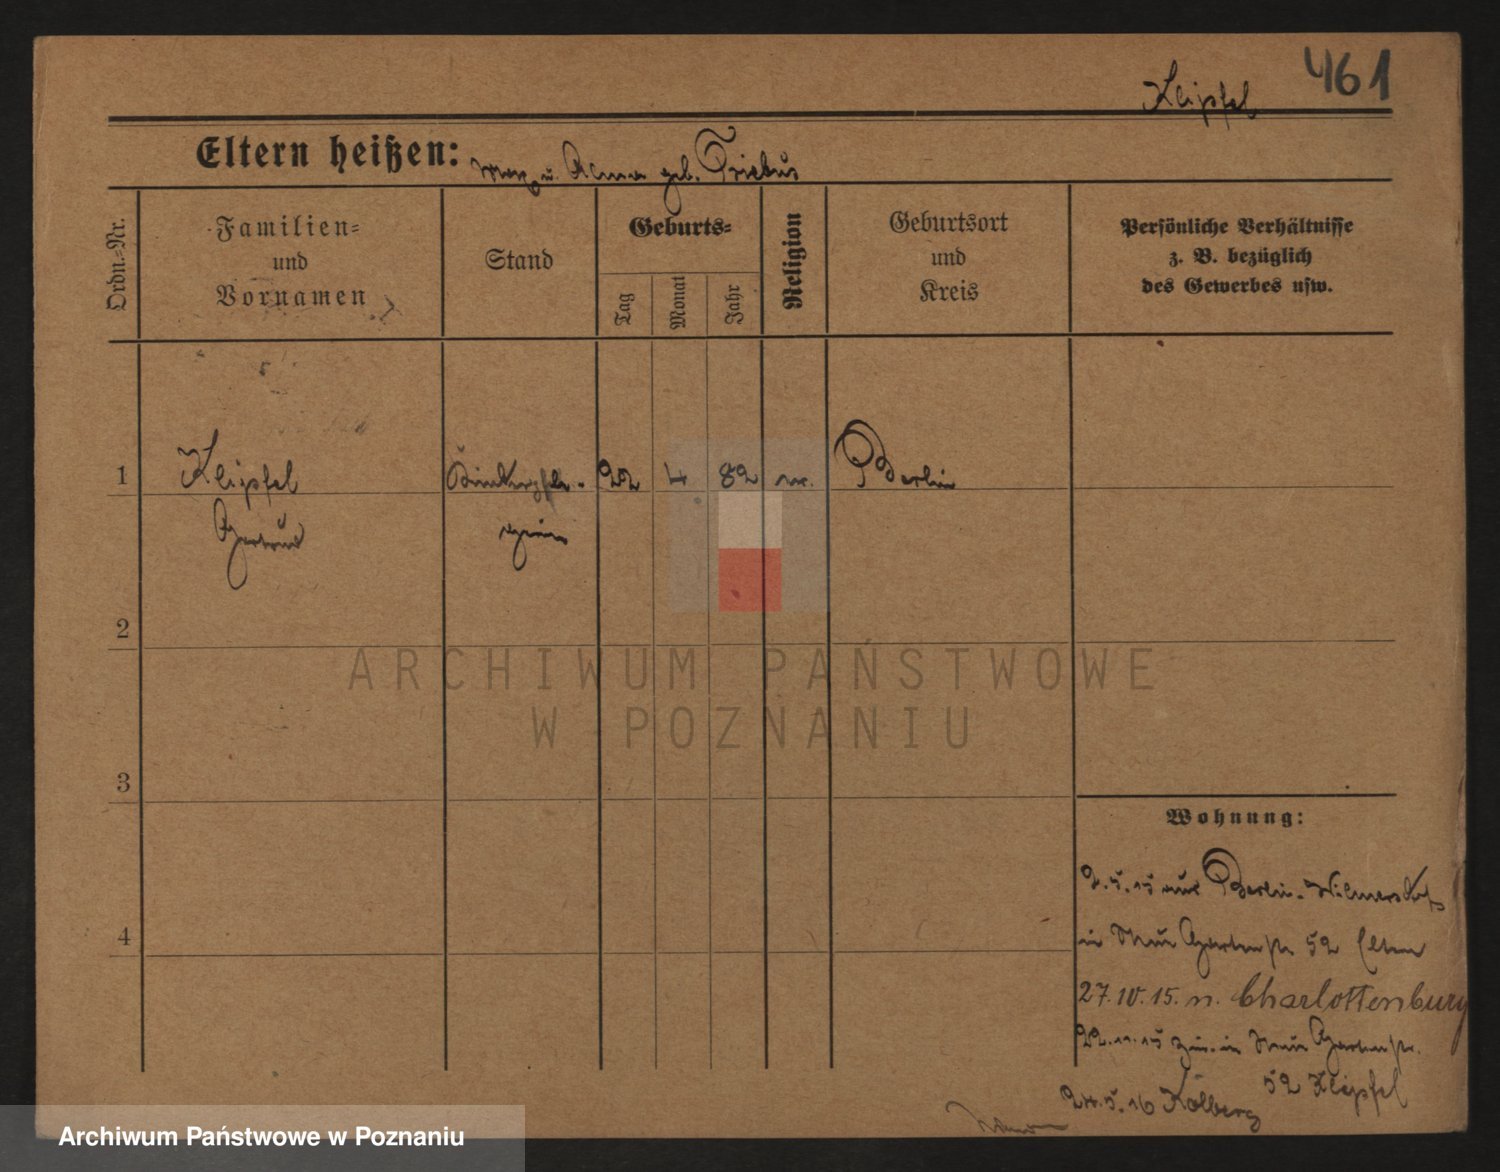 461
Kleipfel
Eltern heißen: Max u. Alma geb. Triebus
Ordn.-Nr.
Familien-
und
Vornamen
Stand
Geburts-
Tag
Monat
Jahr
Religion
Geburtsort
und
Kreis
Persönliche Verhältnisse
z. B. bezüglich
des Gewerbes usw.
1
Kleipfel
Gertrud
22 4 82
Berlin
2
ARCHIWUM PAŃSTWOWE
W POZNANIU
3
Wohnung:
2.5.15 aus Berlin-Wilmersdorf
4
in Neue Gartenstr 52 Eltern
27.10.15. n. Charlottenburg
22.11.15 in Neue Gartenstr.
52 Kleipfel
24.5.16 Kolberg
Archiwum Państwowe w Poznaniu